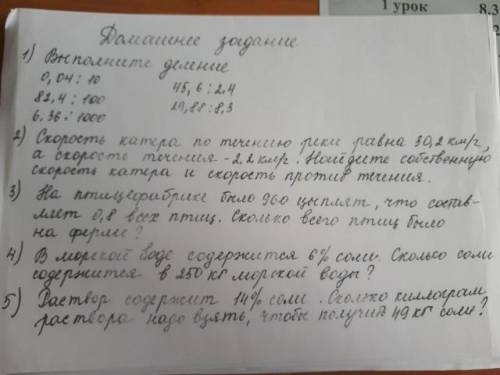 1 урок 8.3
Домашнее задание
1) Выполните деление
0,04 : 10 45,6 : 2,4
82,4 : 100 29,88 : 8,3
6,36 : 1000
2) Скорость катера по течению реки равна 30,2 км/ч,
а скорость течения - 2,2 км/ч. Найдите собственную
скорость катера и скорость против течения.
3) На птицефабрике было 960 цыплят, что состав-
ляет 0,8 всех птиц. Сколько всего птиц было
на ферме?
4) В морской воде содержится 6% соли. Сколько соли
содержится в 250 кг морской воды?
5) Раствор содержит 14% соли. Сколько киллограм
раствора надо взять, чтобы получит 49 кг соли?